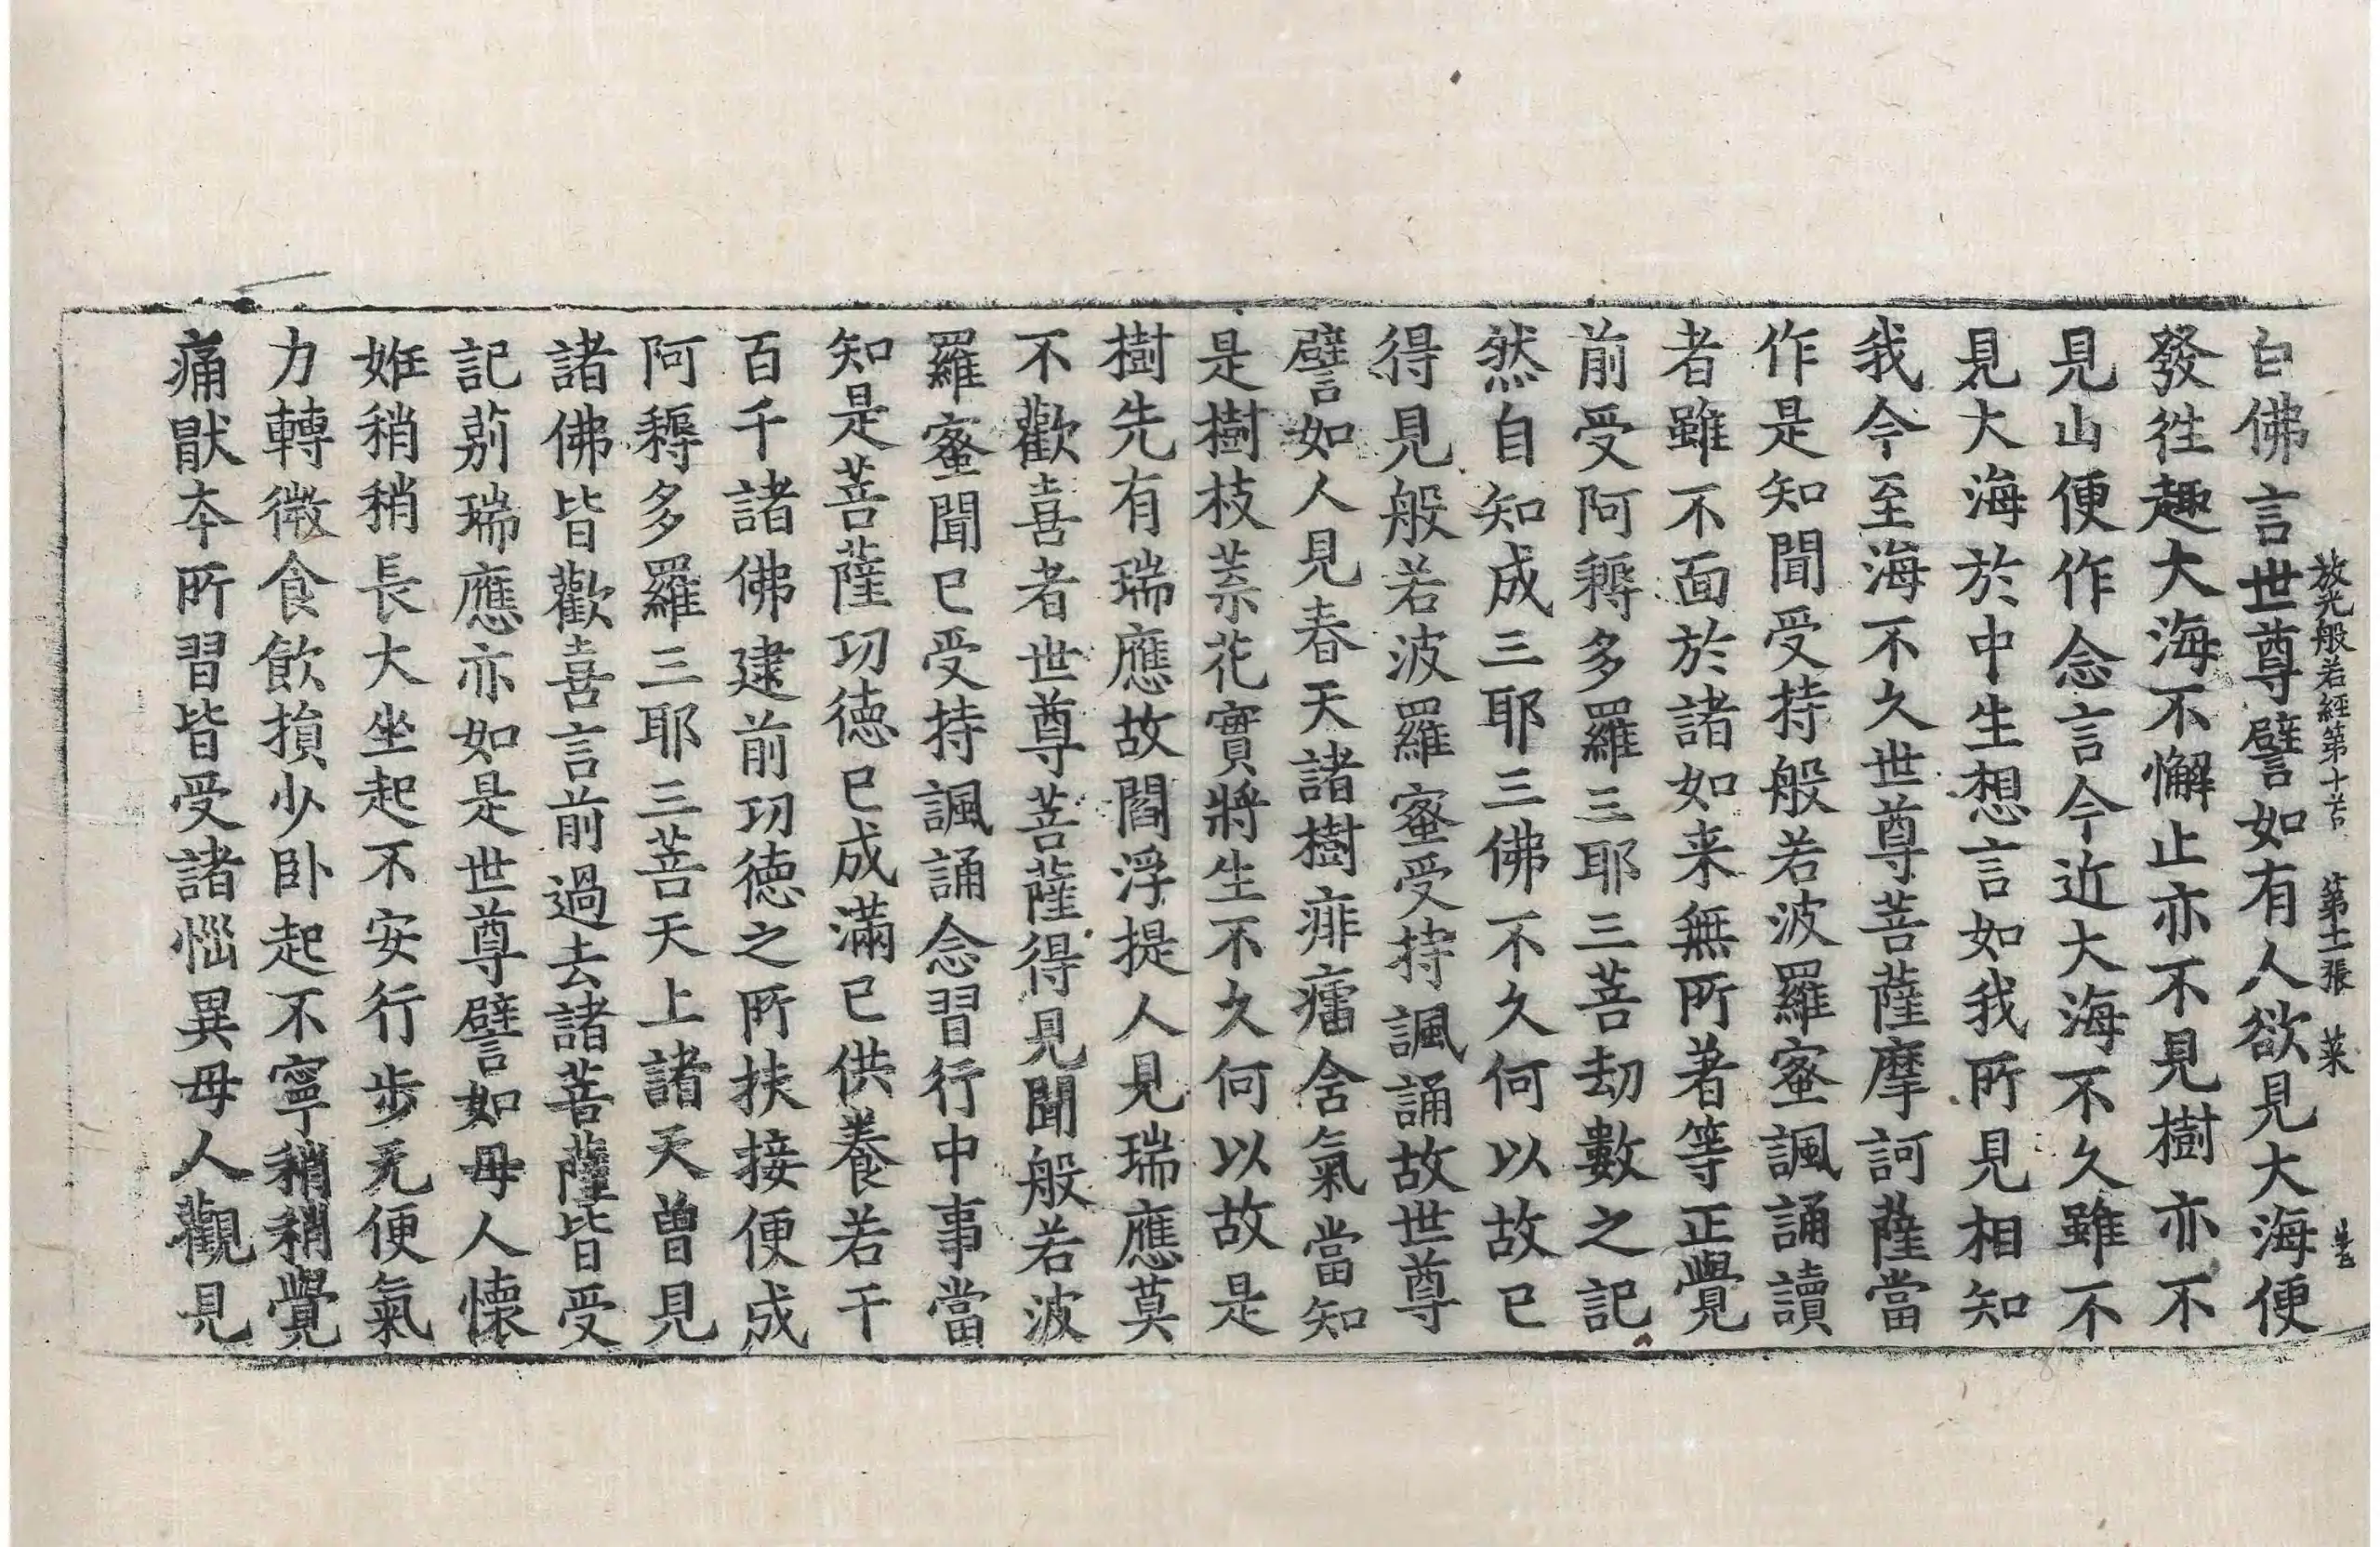 白佛言世尊譬如有人欲見大海便
放光般若經第十 第十二張 菜
發徃趣大海不懈止亦不見樹亦不
見山便作念言今近大海不久雖不
見大海於中生想言如我所見相知
我今至海不久世尊菩薩摩訶薩當
作是知聞受持般若波羅蜜諷誦讀
者雖不面於諸如来無所著等正覺
前受阿耨多羅三耶三菩劫數之記
然自知成三耶三佛不久何以故已
得見般若波羅蜜受持諷誦故世尊
譬如人見春天諸樹痱㿔含氣當知
是樹枝葉花實將生不久何以故是
樹先有瑞應故閻浮提人見瑞應莫
不歡喜者世尊菩薩得見聞般若波
羅蜜聞已受持諷誦念習行中事當
知是菩薩功德已成滿已供養若干
百千諸佛建前功德之所扶接便成
阿耨多羅三耶三菩天上諸天曾見
諸佛皆歡喜言前過去諸菩薩皆受
記莂瑞應亦如是世尊譬如母人懷
妊稍稍長大坐起不安行步无便氣
力轉微食飲損少卧起不寧稍稍覺
痛猒本所習皆受諸惱異母人觀見